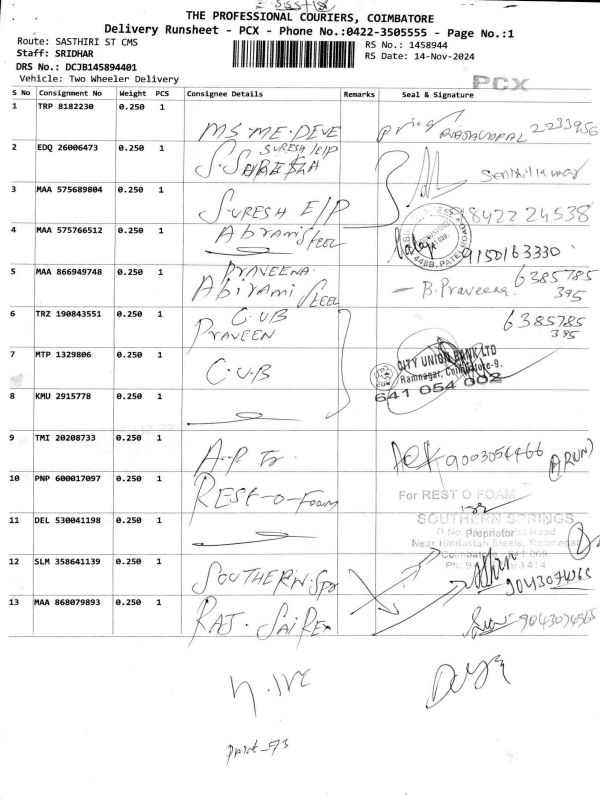 THE PROFESSIONAL COURIERS, COIMBATORE
Delivery Runsheet - PCX - Phone No.:0422-3505555 - Page No.:1
Route: SASTHIRI ST CMS
RS No.: 1458944
Staff: SRIDHAR
RS Date: 14-Nov-2024
DRS No.: DCJB145894401
Vehicle: Two Wheeler Delivery
PCX
S No Consignment No Weight PCS Consignee Details Remarks Seal & Signature
1 TRP 8182230 0.250 1
MS ME. DEVE 2233956
2 EDQ 26006473 0.250 1
SURESH E/P
Senthilkumar
3 MAA 575689804 0.250 1
SURESH E/P 9842224538
4 MAA 575766512 0.250 1
Abirami STEEL 9150163330
5 MAA 866949748 0.250 1
PRAVEENA
Abirami STEEL - B. Praveena. 6385785
395
6 TRZ 190843551 0.250 1
C.U.B 6385785
395
PRAVEEN
7 MTP 1329806 0.250 1
C.U.B
CITY UNION BANK LTD
Ramnagar, Coimbatore-9.
641 054 002
8 KMU 2915778 0.250 1
9 TMI 20208733 0.250 1
A.P Tr 9003054466 (ARUN)
10 PNP 600017097 0.250 1
REST-O-FOAM
For REST O FOAM
11 DEL 530041198 0.250 1
SOUTHERN SPRINGS
Proprietor
Near Hindustan Steels, Ramnagar
12 SLM 358641139 0.250 1
SOUTHERN. Spr 9043074965
13 MAA 868079893 0.250 1
RAJ. SAI REX 9043074965